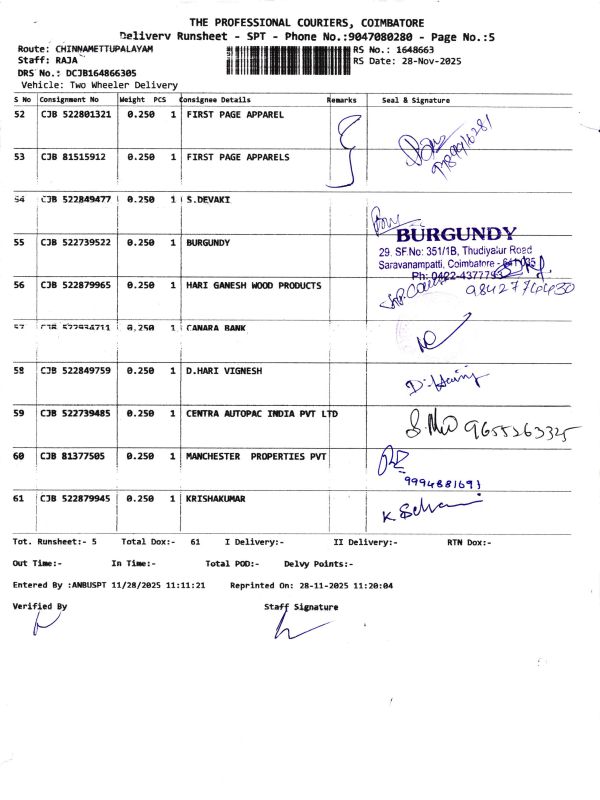 THE PROFESSIONAL COURIERS, COIMBATORE
Delivery Runsheet - SPT - Phone No.:9047080280 - Page No.:5
Route: CHINNAMETTUPALAYAM
RS No.: 1648663
Staff: RAJA
RS Date: 28-Nov-2025
DRS No.: DCJB164866305
Vehicle: Two Wheeler Delivery
S No Consignment No Weight PCS Consignee Details Remarks Seal & Signature
52 CJB 522801321 0.250 1 FIRST PAGE APPAREL
53 CJB 81515912 0.250 1 FIRST PAGE APPARELS
54 CJB 522849477 0.250 1 S.DEVAKI
BURGUNDY
55 CJB 522739522 0.250 1 BURGUNDY
29. SF.No: 351/1B, Thudiyalur Road
Saravanampatti, Coimbatore - 641 035
Ph: 0422-4377793
56 CJB 522879965 0.250 1 HARI GANESH WOOD PRODUCTS
9842774430
57 CJB 522934711 0.250 1 CANARA BANK
58 CJB 522849759 0.250 1 D.HARI VIGNESH
59 CJB 522739485 0.250 1 CENTRA AUTOPAC INDIA PVT LTD
9655263325
60 CJB 81377505 0.250 1 MANCHESTER PROPERTIES PVT
9994881691
61 CJB 522879945 0.250 1 KRISHAKUMAR
Tot. Runsheet:- 5 Total Dox:- 61 I Delivery:- II Delivery:- RTN Dox:-
Out Time:- In Time:- Total POD:- Delvy Points:-
Entered By :ANBUSPT 11/28/2025 11:11:21 Reprinted On: 28-11-2025 11:20:04
Verified By Staff Signature